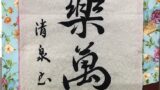 樂萬
清泉書